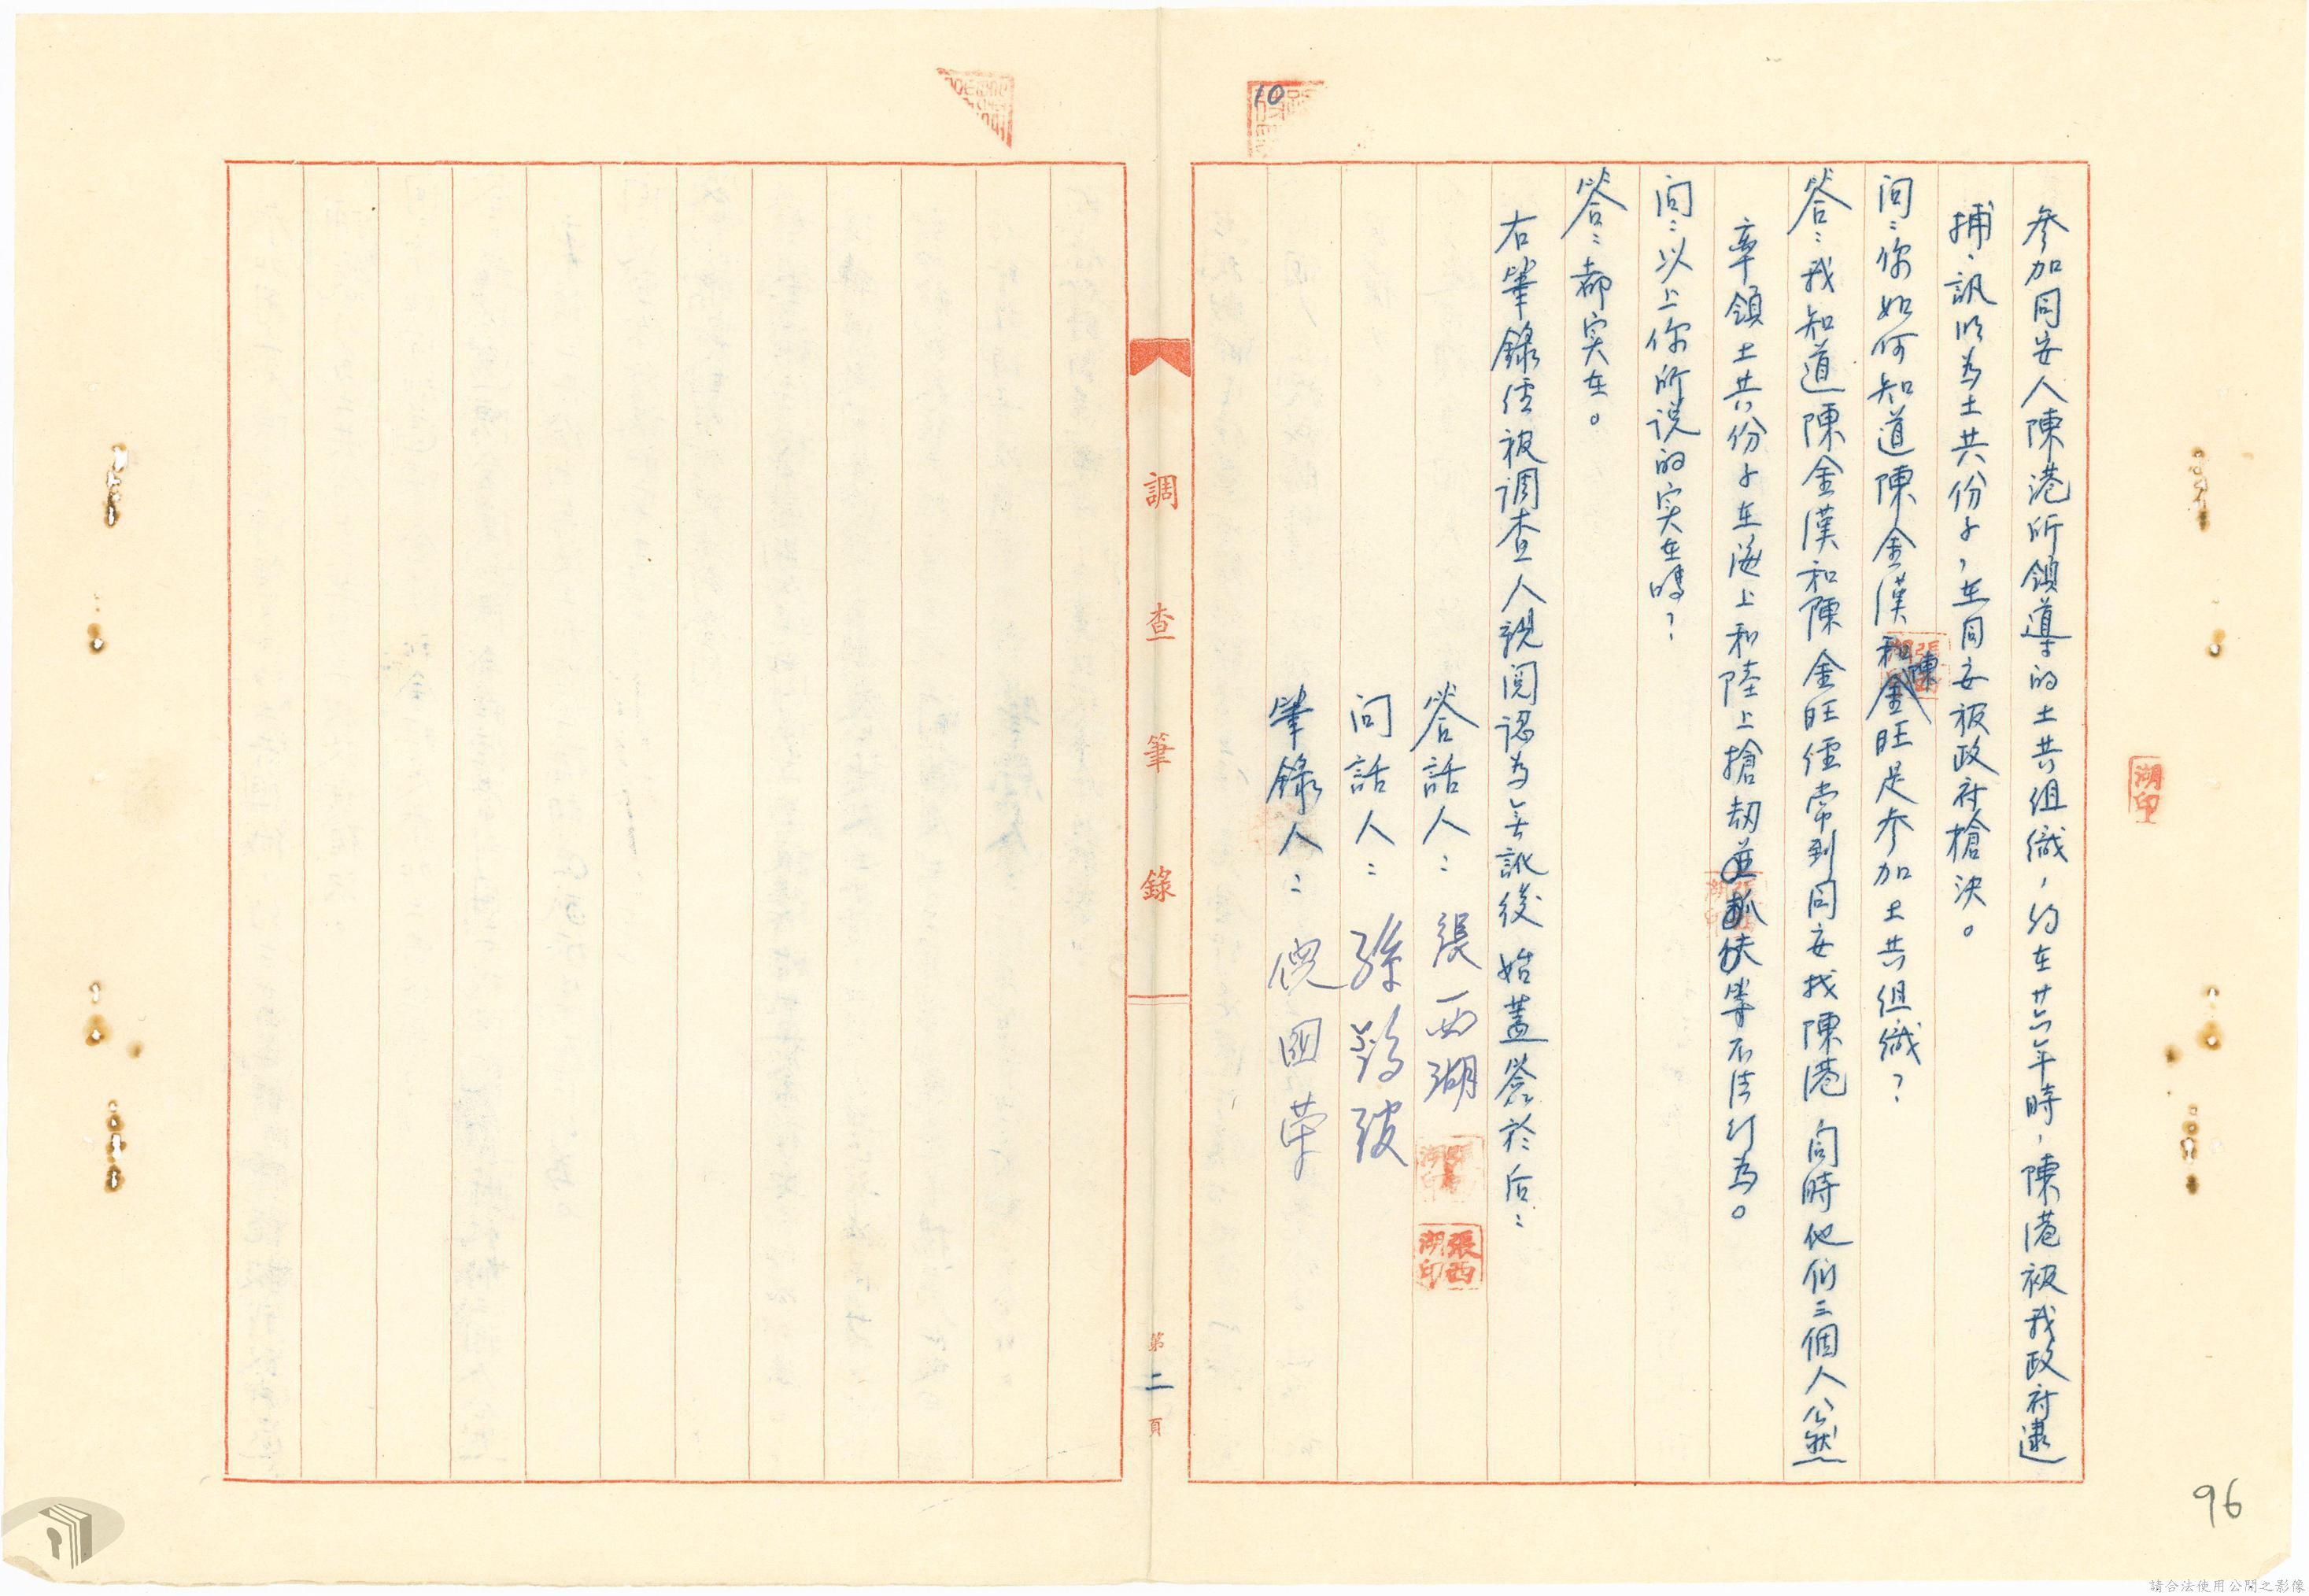 參加同安人陳港所領導的土共組織，約在廿六年時，陳港被我政府逮
捕，訊明為土共份子，在同安被政府槍決。
問：你如何知道陳金漢和陳金旺是參加土共組織？
答：我知道陳金漢和陳金旺經常到同安找陳港 同時他們三個人公然
率領土共份子在海上和陸上搶劫並等不法行為。
問：以上你所说的实在嗎？
答：都实在。
右筆錄經被調查人親閱認為無訛後始蓋簽於后：
答話人：張西湖
張西湖印
問話人：孫
筆錄人：倪国荣
調查筆錄
第二頁
10
湖印
96
請合法使用公開之影像